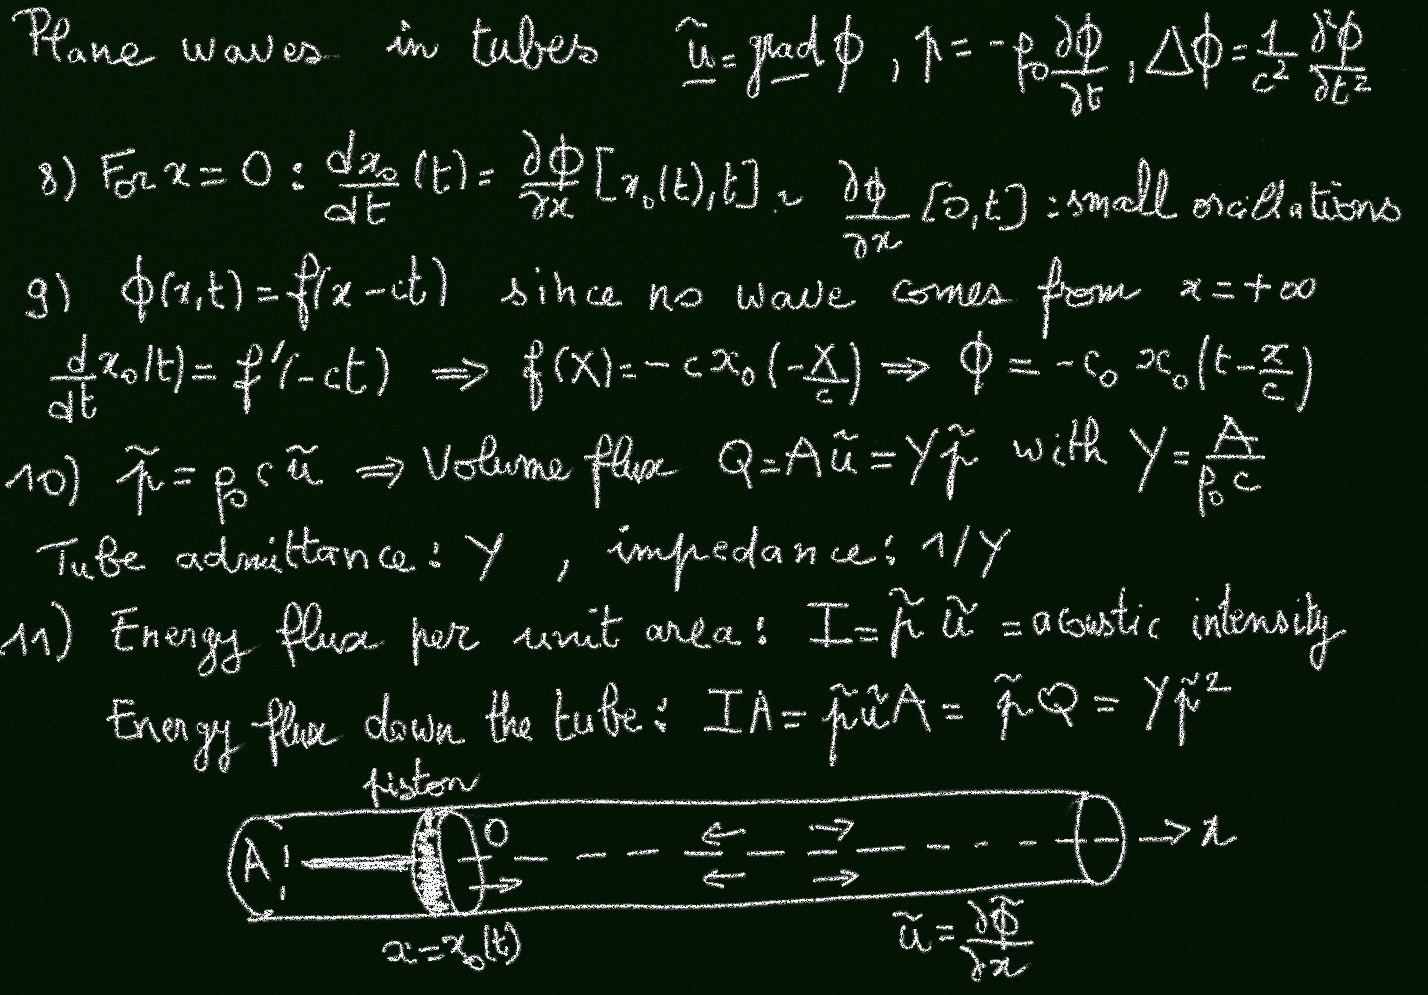 Plane waves in tubes ũ = grad ϕ , p = -ρ₀ ∂ϕ/∂t , Δϕ = 1/c² ∂²ϕ/∂t²
8) For x = 0 : dx₀/dt (t) = ∂ϕ/∂x [x₀(t), t] ~ ∂ϕ/∂x [0, t] : small oscillations
9) ϕ(x, t) = f(x - ct) since no wave comes from x = +∞
d/dt x₀(t) = f'(-ct) ⇒ f(X) = -c x₀(-X/c) ⇒ ϕ = -c₀ x₀(t - x/c)
10) p̃ = ρ₀ c ũ ⇒ Volume flux Q = A ũ = Y p̃ with Y = A/ρ₀ c
Tube admittance : Y , impedance : 1/Y
11) Energy flux per unit area : I = p̃ ũ = acoustic intensity
Energy flux down the tube : I A = p̃ ũ A = p̃ Q = Y p̃²
piston
A O → x
x = x₀(t) ũ = ∂ϕ̃/∂x